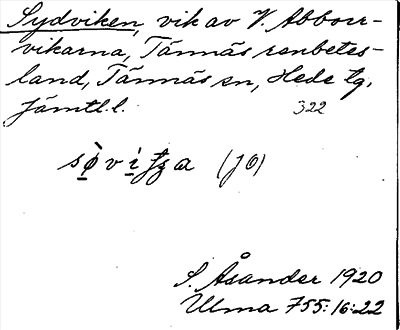 Sydviken, vik av V. Abborr-
vikarna, Tännäs renbetes-
land, Tännäs sn, Hede tg,
Jämtl. l.
322
(JO)
S. Åsander 1920
Ulma 755:16:22